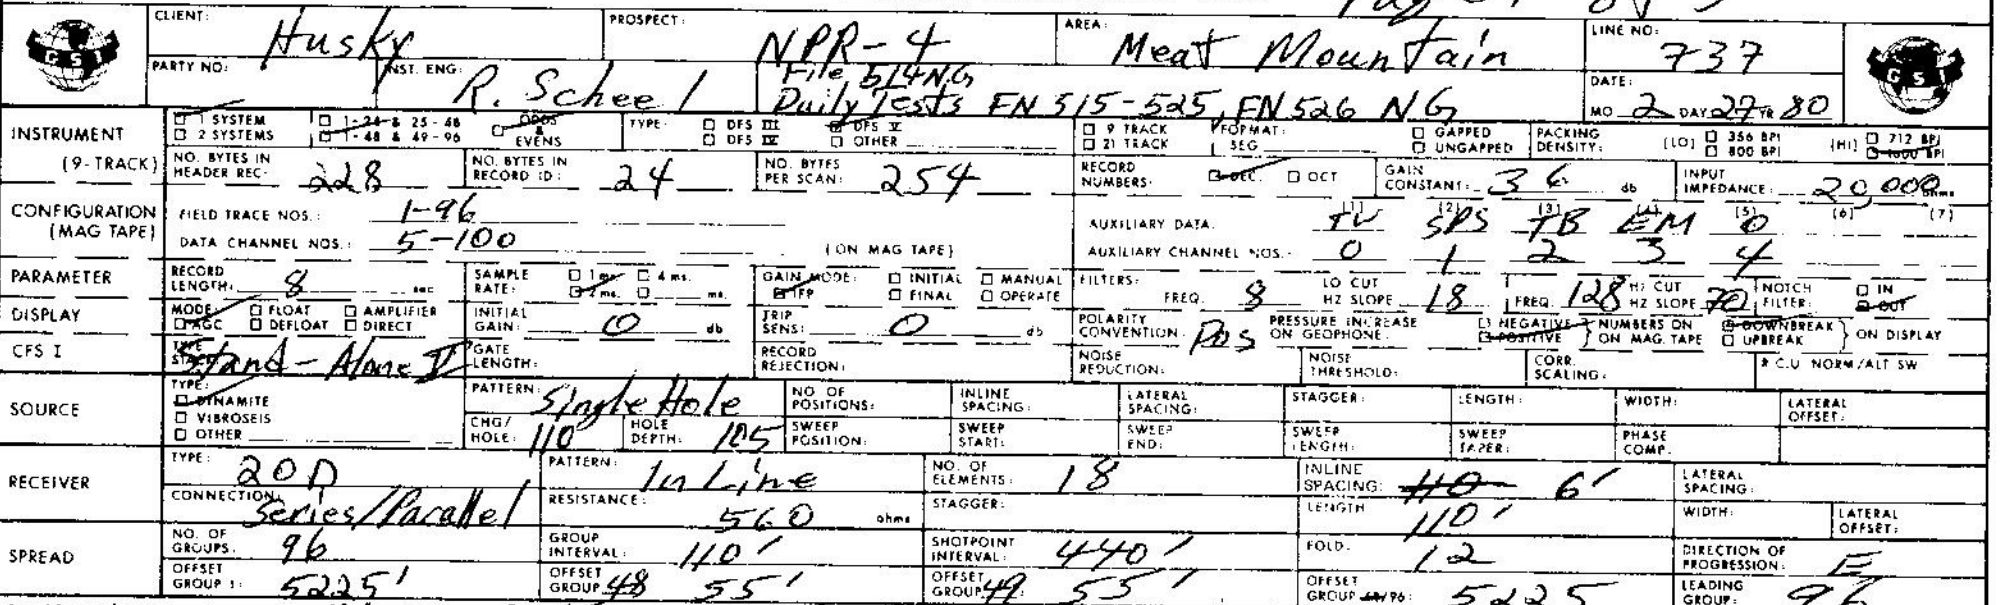 CLIENT: Husky PROSPECT: NPR-4 AREA: Meat Mountain LINE NO: 737
GSI GSI
PARTY NO: INST. ENG: R. Scheel File 514NG DATE:
Daily Tests FN 515-525, FN526 NG MO 2 DAY 27 YR 80
INSTRUMENT 1 SYSTEM 1-24 & 25-48 ODDS & EVENS TYPE: DFS III DFS V 9 TRACK FORMAT: GAPPED PACKING DENSITY: (LO) 356 BPI (HI) 712 BPI
2 SYSTEMS 1-48 & 49-96 DFS IV OTHER 21 TRACK SEG UNGAPPED 800 BPI 1600 BPI
(9-TRACK) NO. BYTES IN HEADER REC. 228 NO. BYTES IN RECORD ID: 24 NO. BYTES PER SCAN: 254 RECORD NUMBERS: DEC. OCT GAIN CONSTANT: 36 db INPUT IMPEDANCE: 20,000 ohms
CONFIGURATION FIELD TRACE NOS.: 1-96 AUXILIARY DATA: (1) TU (2) SPS (3) TB (4) EM (5) 0 (6) (7)
(MAG TAPE) DATA CHANNEL NOS.: 5-100 (ON MAG TAPE) AUXILIARY CHANNEL NOS.: 0 1 2 3 4
PARAMETER RECORD LENGTH: 8 sec SAMPLE RATE: 1 ms. 4 ms. 2 ms. ms. GAIN MODE: INITIAL MANUAL IFP FINAL OPERATE FILTERS: FREQ. 8 LO CUT HZ SLOPE 18 FREQ. 128 HI CUT HZ SLOPE 70 NOTCH FILTER: IN OUT
DISPLAY MODE: FLOAT AMPLIFIER AGC DEFLOAT DIRECT INITIAL GAIN: 0 db TRIP SENS: 0 db POLARITY CONVENTION: Pos PRESSURE INCREASE ON GEOPHONE: NEGATIVE POSITIVE NUMBERS ON MAG. TAPE DOWNBREAK UPBREAK ON DISPLAY
CFS I Stand-Alone V GATE LENGTH: RECORD REJECTION: NOISE REDUCTION: NOISE THRESHOLD: CORR. SCALING: R.C.U NORM/ALT SW
SOURCE TYPE: DYNAMITE PATTERN: Single Hole NO. OF POSITIONS: INLINE SPACING: LATERAL SPACING: STAGGER: LENGTH: WIDTH: LATERAL OFFSET:
VIBROSEIS OTHER CHG/HOLE: 110 HOLE DEPTH: 105 SWEEP POSITION: SWEEP START: SWEEP END: SWEEP LENGTH: SWEEP TAPER: PHASE COMP.
RECEIVER TYPE: 20D PATTERN: In Line NO. OF ELEMENTS: 18 INLINE SPACING: 110 6' LATERAL SPACING:
CONNECTION: Series/Parallel RESISTANCE: 560 ohms STAGGER: LENGTH 110' WIDTH: LATERAL OFFSET:
SPREAD NO. OF GROUPS. 96 GROUP INTERVAL: 110' SHOTPOINT INTERVAL: 440' FOLD. 12 DIRECTION OF PROGRESSION: E
OFFSET GROUP 1: 5225' OFFSET GROUP 48 55' OFFSET GROUP 49: 55' OFFSET GROUP 48/96: 5225 LEADING GROUP: 96